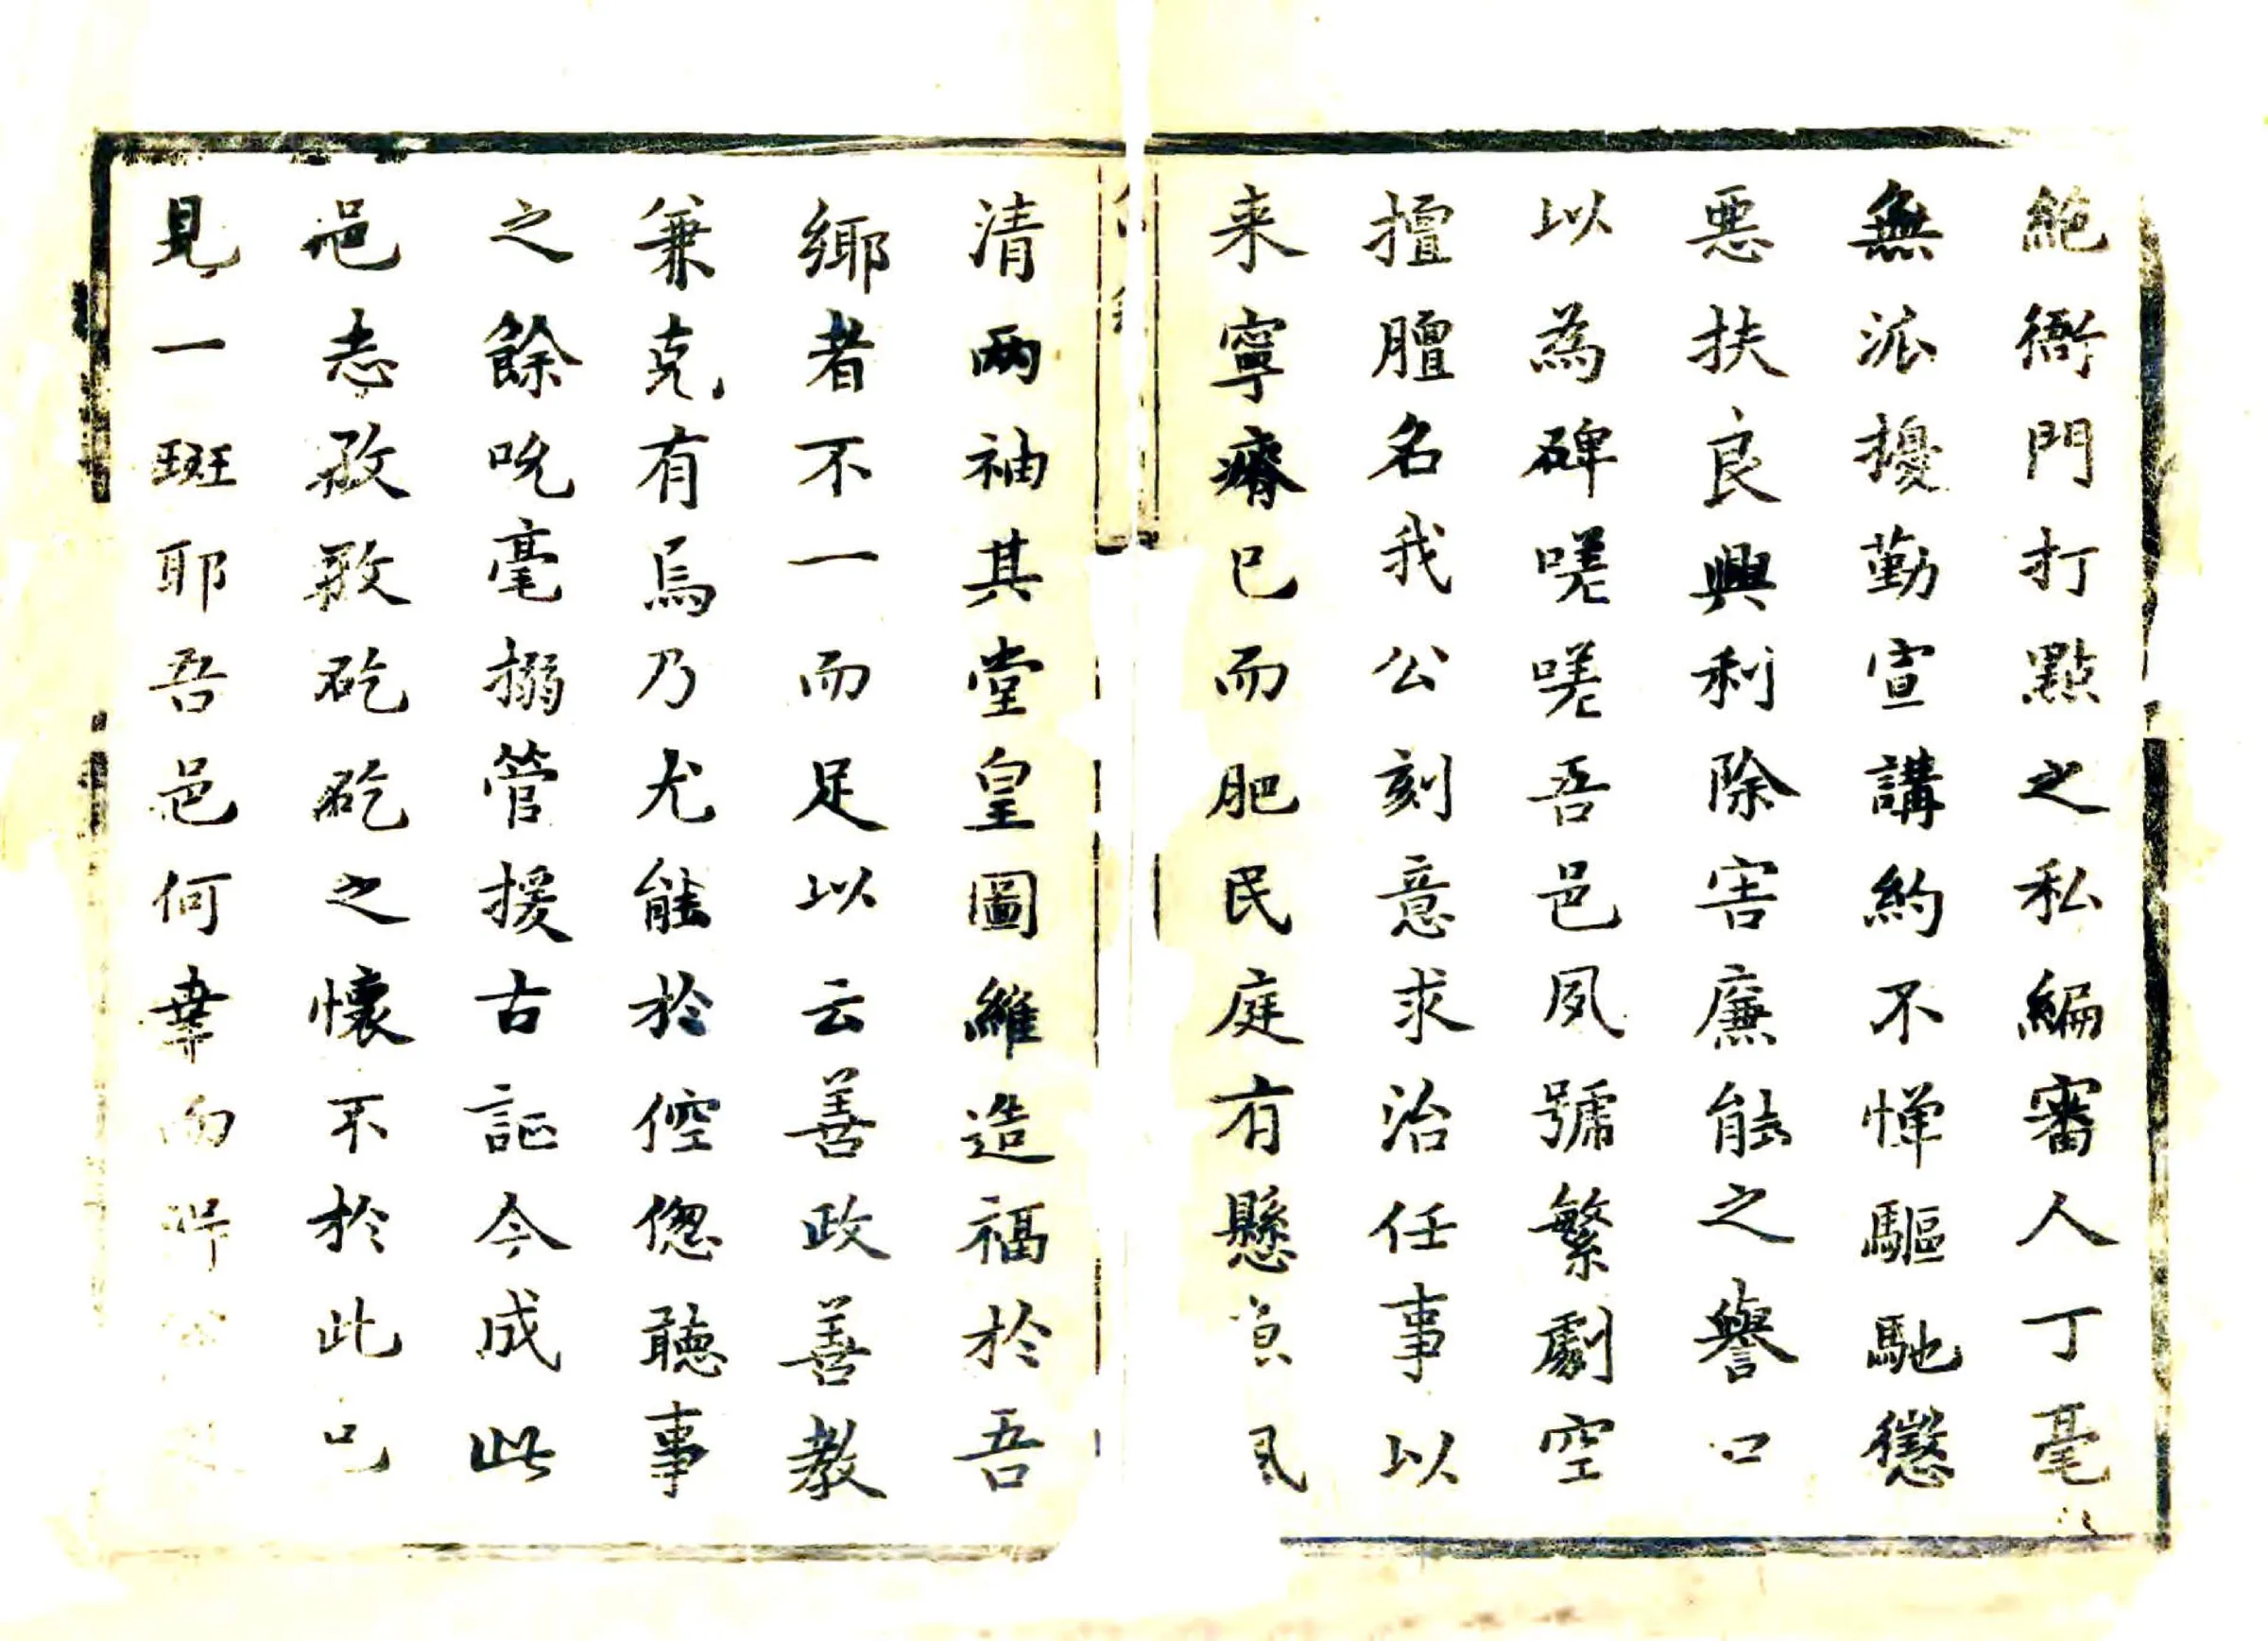 絕衙門打點之私編審人丁毫
無派擾勤宣講約不憚驅馳懲
惡扶良興利除害廉能之譽口
以為碑嗟嗟吾邑夙號繁劇空
擅膻名我公刻意求治任事以
来寧瘠已而肥民庭有懸魚風
清兩袖其堂皇圖維造福於吾
鄉者不一而足以云善政善教
兼克有焉乃尤能於倥偬聽事
之餘吮毫搦管援古証今成此
邑志孜孜矻矻之懷不於此已
見一斑耶吾邑何幸而